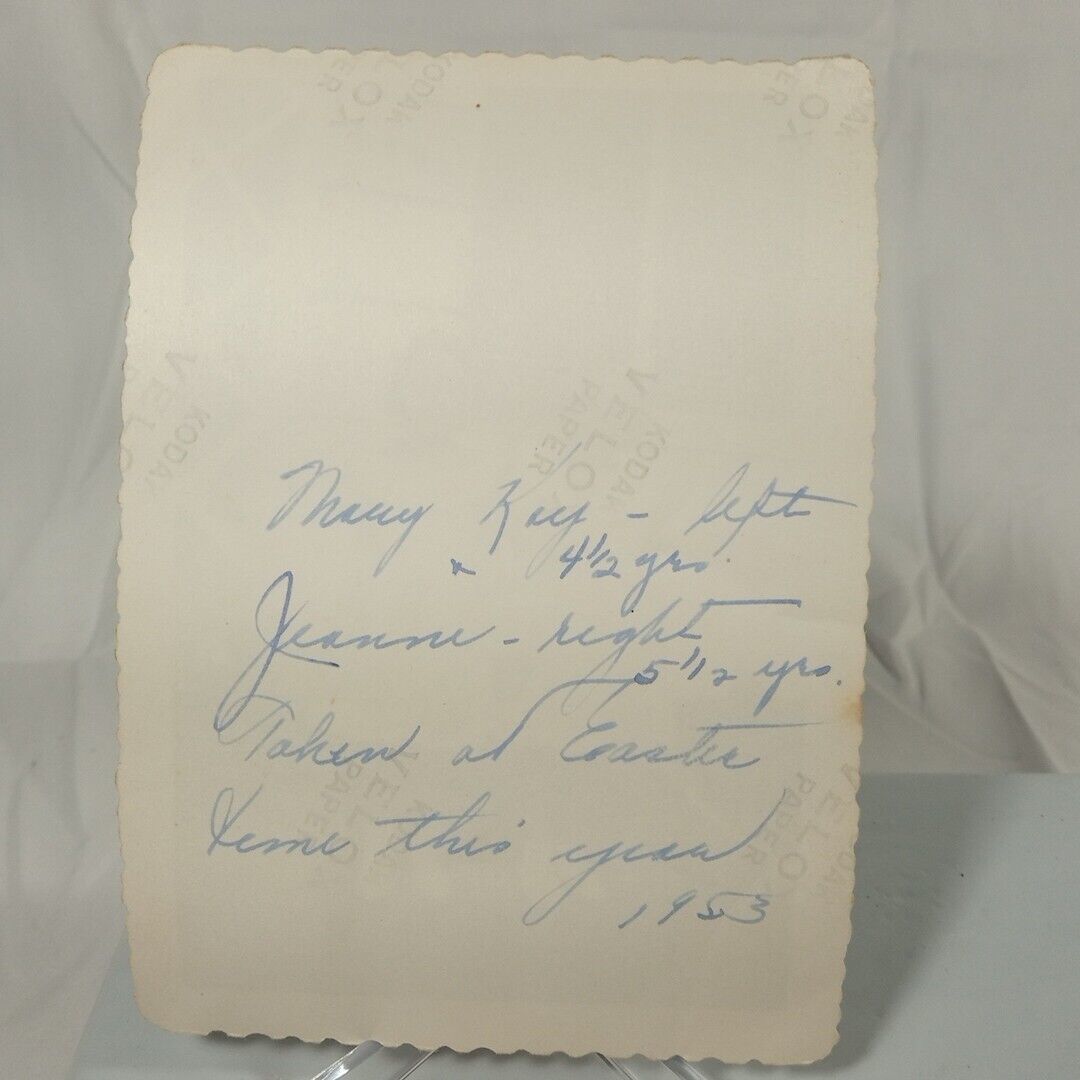 KODAK
VELOX
PAPER
KODAK
VELOX
PAPER
KODAK
VELOX
KODAK
VELOX
PAPER
Mary Kay - left
" 4 1/2 yrs.
Jeanne - right
5 1/2 yrs.
Taken at Easter
time this year
1953
VELOX
PAPER
KODAK
VELOX
PAPER